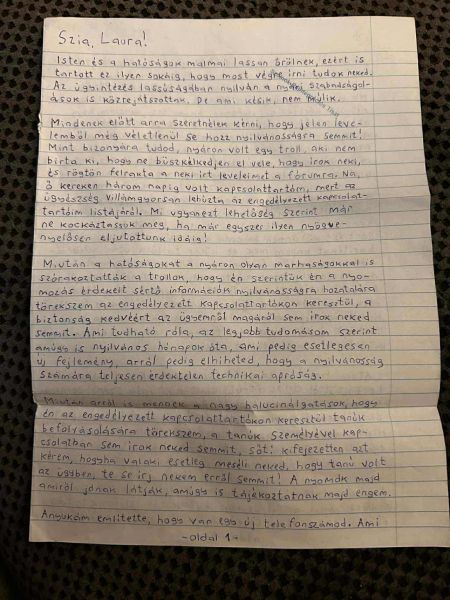 Szia, Laura!
Isten és a hatóságok malmai lassan őrölnek, ezért is
tartott ez ilyen sokáig, hogy most végre írni tudok neked.
Az ügyintézés lassúságában nyilván a nyári szabadságol-
ások is közrejátszottak. De ami késik, nem múlik.
Mindenek előtt arra szeretnélek kérni, hogy jelen leve-
lemből még véletlenül se hozz nyilvánosságra semmit!
Mint bizonyára tudod, nyáron volt egy troll, aki nem
bírta ki, hogy ne büszkélkedjen el vele, hogy írok neki,
és rögtön felrakta a neki írt leveleimet a fórumra. Na,
ő kereken három napig volt kapcsolattartóm, mert az
ügyészség villámgyorsan lehúzta az engedélyezett kapcsolat-
tartóim listájáról. Mi ugyanezt lehetőség szerint már
ne kockáztassuk meg, ha már egyszer ilyen nyögve-
nyelősen eljutottunk idáig!
Miután a hatóságokat a nyáron olyan marhaságokkal is
szórakoztatták a trollok, hogy én szerintük én a nyo-
mozás érdekeit sértő információk nyilvánosságra hozatalára
törekszem az engedélyezett kapcsolattartókon keresztül, a
biztonság kedvéért az ügyemről magáról sem írok neked
semmit. Ami tudható róla, az legjobb tudomásom szerint
amúgy is nyilvános hónapok óta, ami pedig esetlegesen
új fejlemény, arról pedig elhiheted, hogy a nyilvánosság
számára teljesen érdektelen technikai apróság.
Miután arról is mennek a nagy halucinálgatások, hogy
én az engedélyezett kapcsolattartókon keresztül tanúk
befolyásolására törekszem, a tanúk személyével kap-
csolatban sem írok neked semmit, sőt: kifejezetten azt
kérem, hogyha valaki esetleg meséli neked, hogy tanú volt
az ügyben, te se írj nekem erről semmit! A nyomók majd
amiről jónak látják, amúgy is tájékoztatnak majd engem.
Anyukám említette, hogy van egy új telefonszámod. Ami
- oldal 1 -